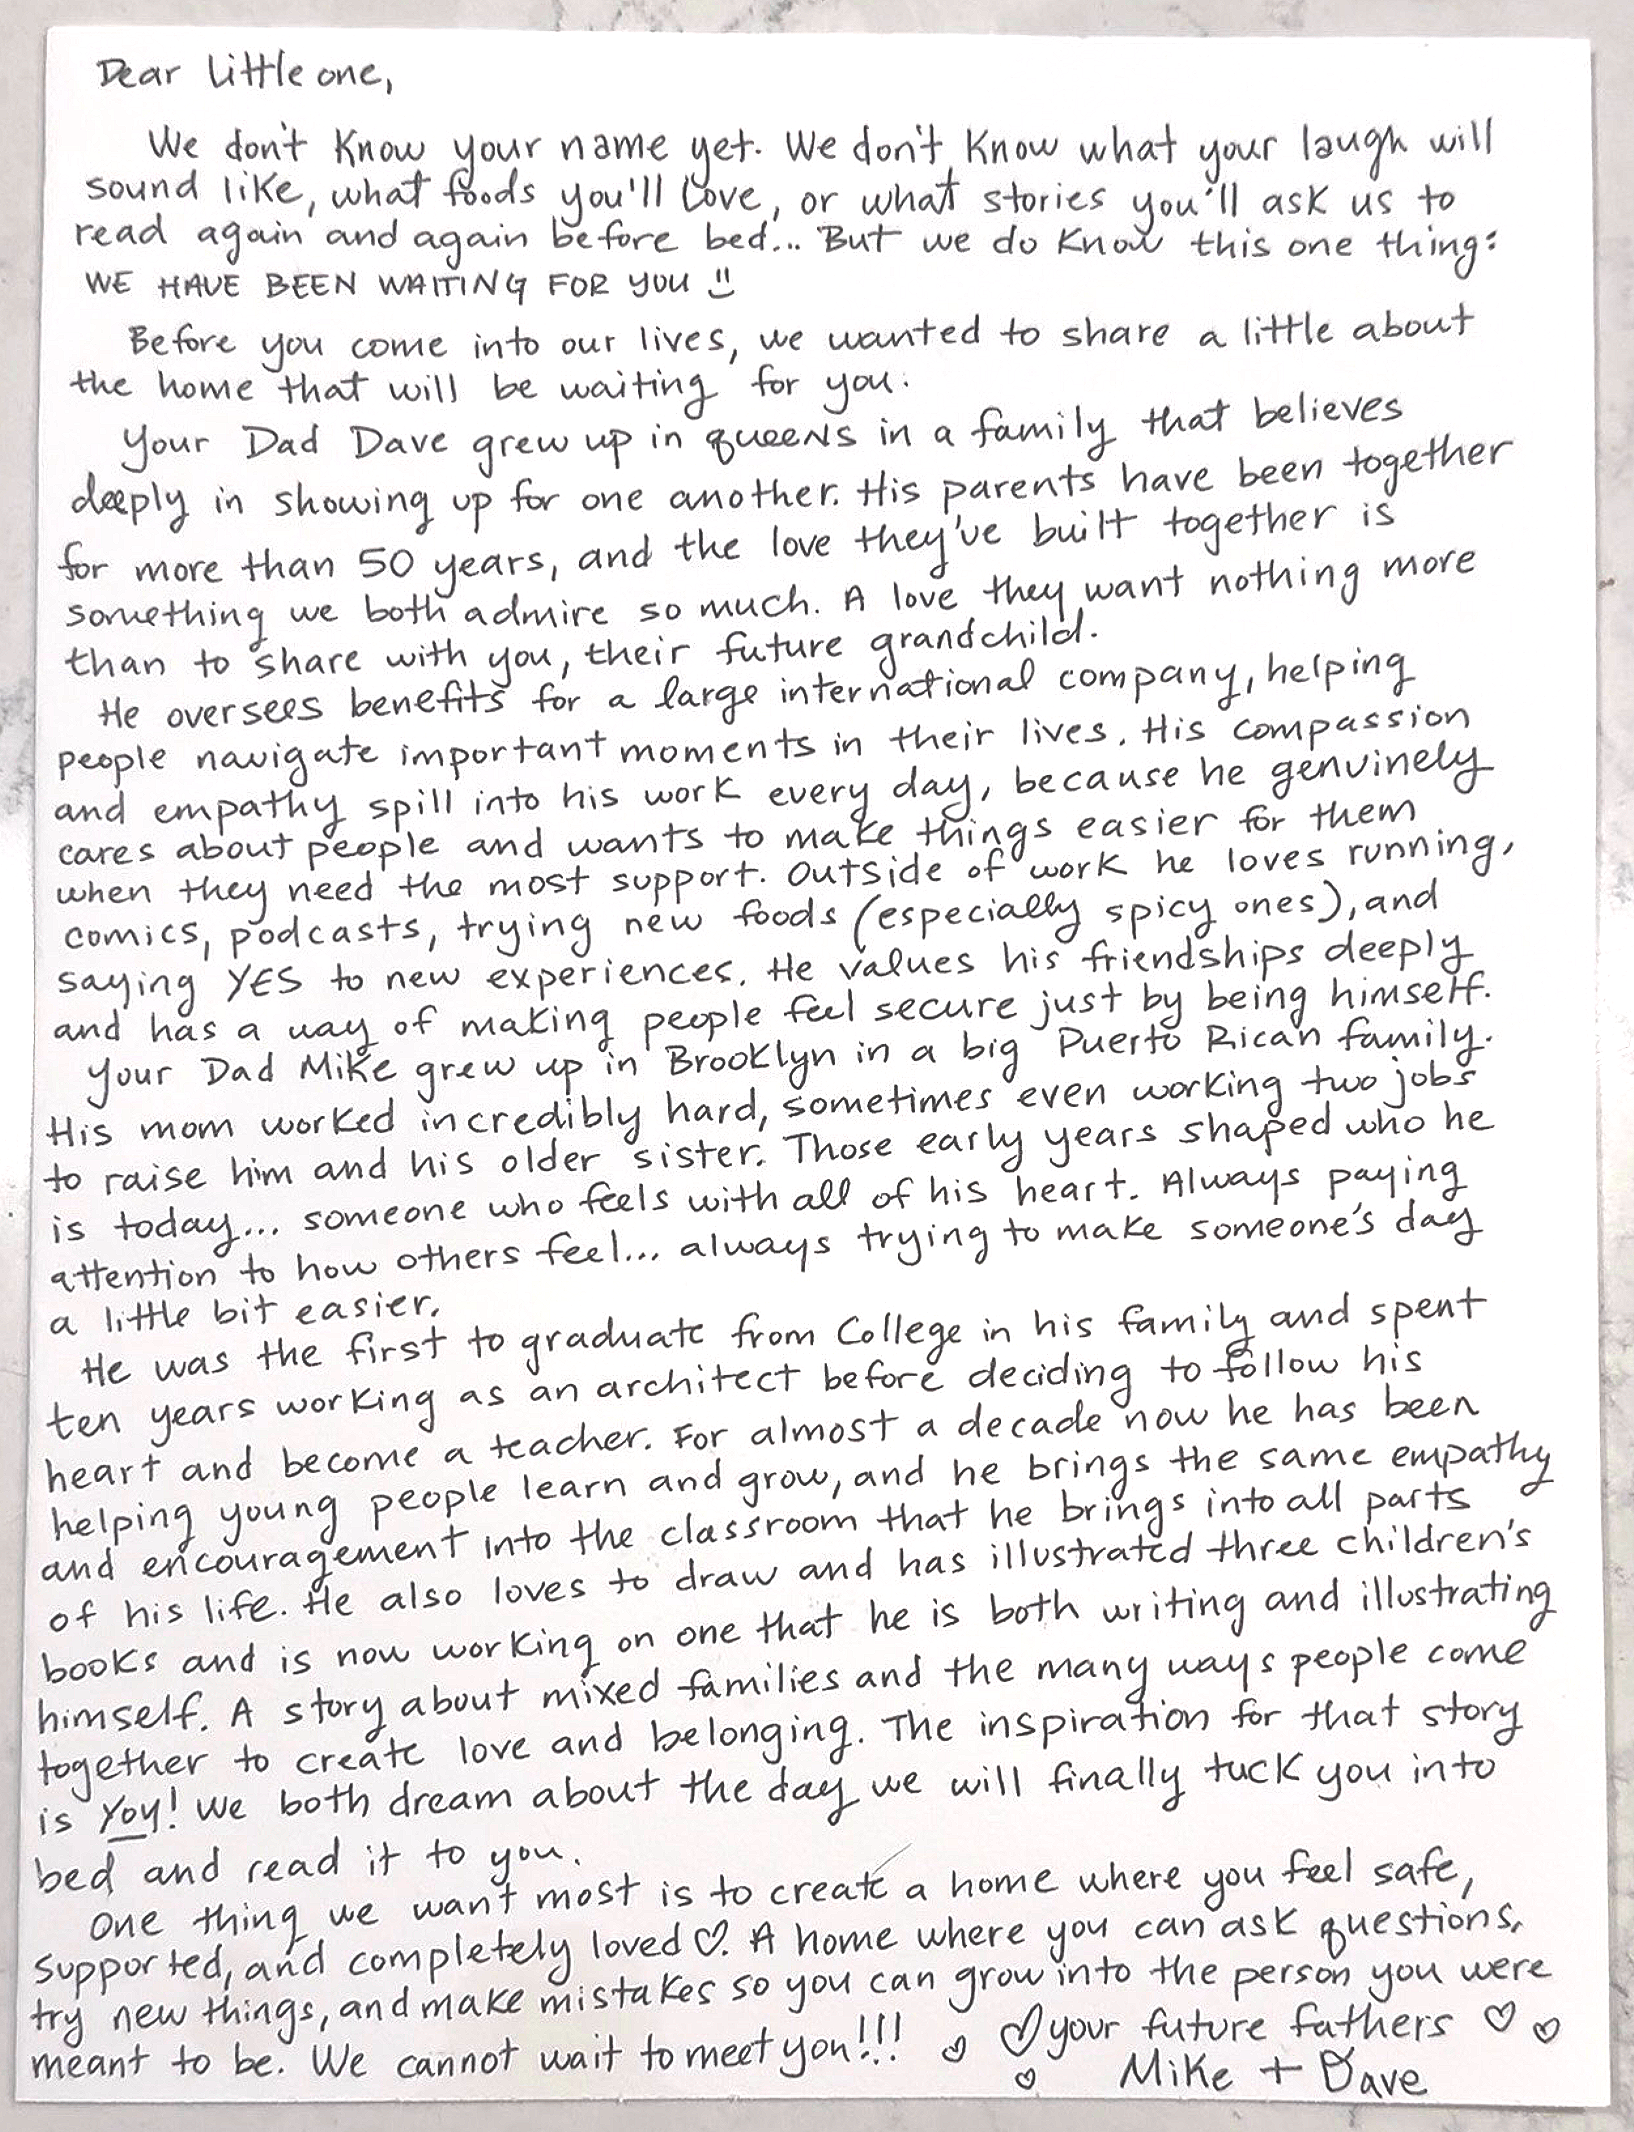 Dear little one,
We don't know your name yet. We don't know what your laugh will
sound like, what foods you'll love, or what stories you'll ask us to
read again and again before bed... But we do know this one thing:
WE HAVE BEEN WAITING FOR YOU
Before you come into our lives, we wanted to share a little about
the home that will be waiting for you.
Your Dad Dave grew up in queens in a family that believes
deeply in showing up for one another. His parents have been together
for more than 50 years, and the love they've built together is
something we both admire so much. A love they want nothing more
than to share with you, their future grandchild.
He oversees benefits for a large international company, helping
people navigate important moments in their lives. His compassion
and empathy spill into his work every day, because he genuinely
cares about people and wants to make things easier for them
when they need the most support. Outside of work he loves running,
comics, podcasts, trying new foods (especially spicy ones), and
saying YES to new experiences. He values his friendships deeply
and has a way of making people feel secure just by being himself.
Your Dad Mike grew up in Brooklyn in a big Puerto Rican family.
His mom worked incredibly hard, sometimes even working two jobs
to raise him and his older sister. Those early years shaped who he
is today... someone who feels with all of his heart. Always paying
attention to how others feel... always trying to make someone's day
a little bit easier.
He was the first to graduate from College in his family and spent
ten years working as an architect before deciding to follow his
heart and become a teacher. For almost a decade now he has been
helping young people learn and grow, and he brings the same empathy
and encouragement into the classroom that he brings into all parts
of his life. He also loves to draw and has illustrated three children's
books and is now working on one that he is both writing and illustrating
himself. A story about mixed families and the many ways people come
together to create love and belonging. The inspiration for that story
is you! We both dream about the day we will finally tuck you into
bed and read it to you.
One thing we want most is to create a home where you feel safe,
supported, and completely loved ♡. A home where you can ask questions,
try new things, and make mistakes so you can grow into the person you were
meant to be. We cannot wait to meet you!!! ♡ ♡ your future fathers ♡ ♡
♡ Mike + Dave